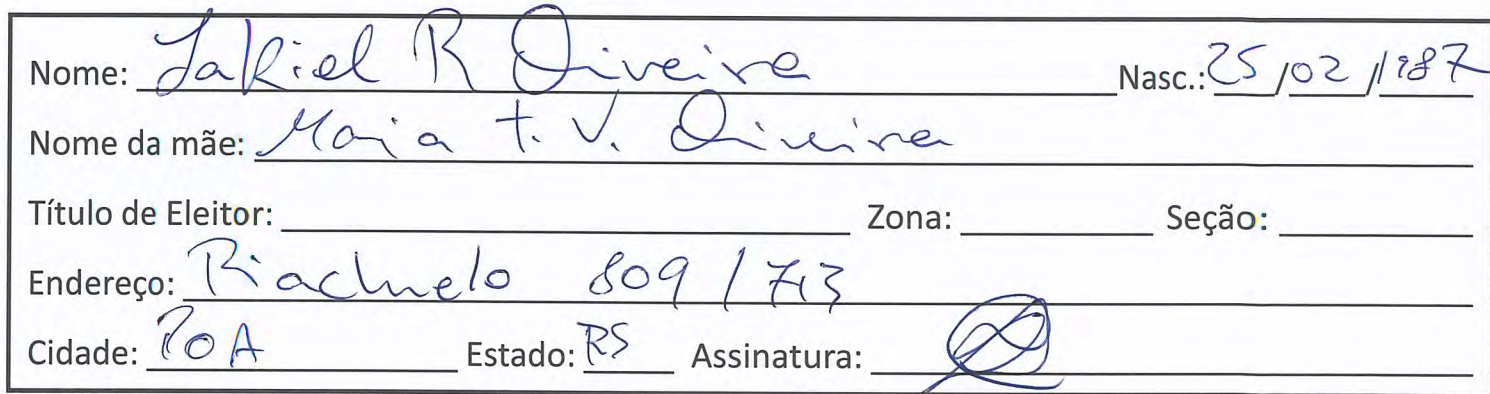 Nome: Jakiel R Oliveira Nasc.: 25/02/1987
Nome da mãe: Maria T. V. Oliveira
Título de Eleitor: Zona: Seção:
Endereço: Riachuelo 809 / 713
Cidade: POA Estado: RS Assinatura: